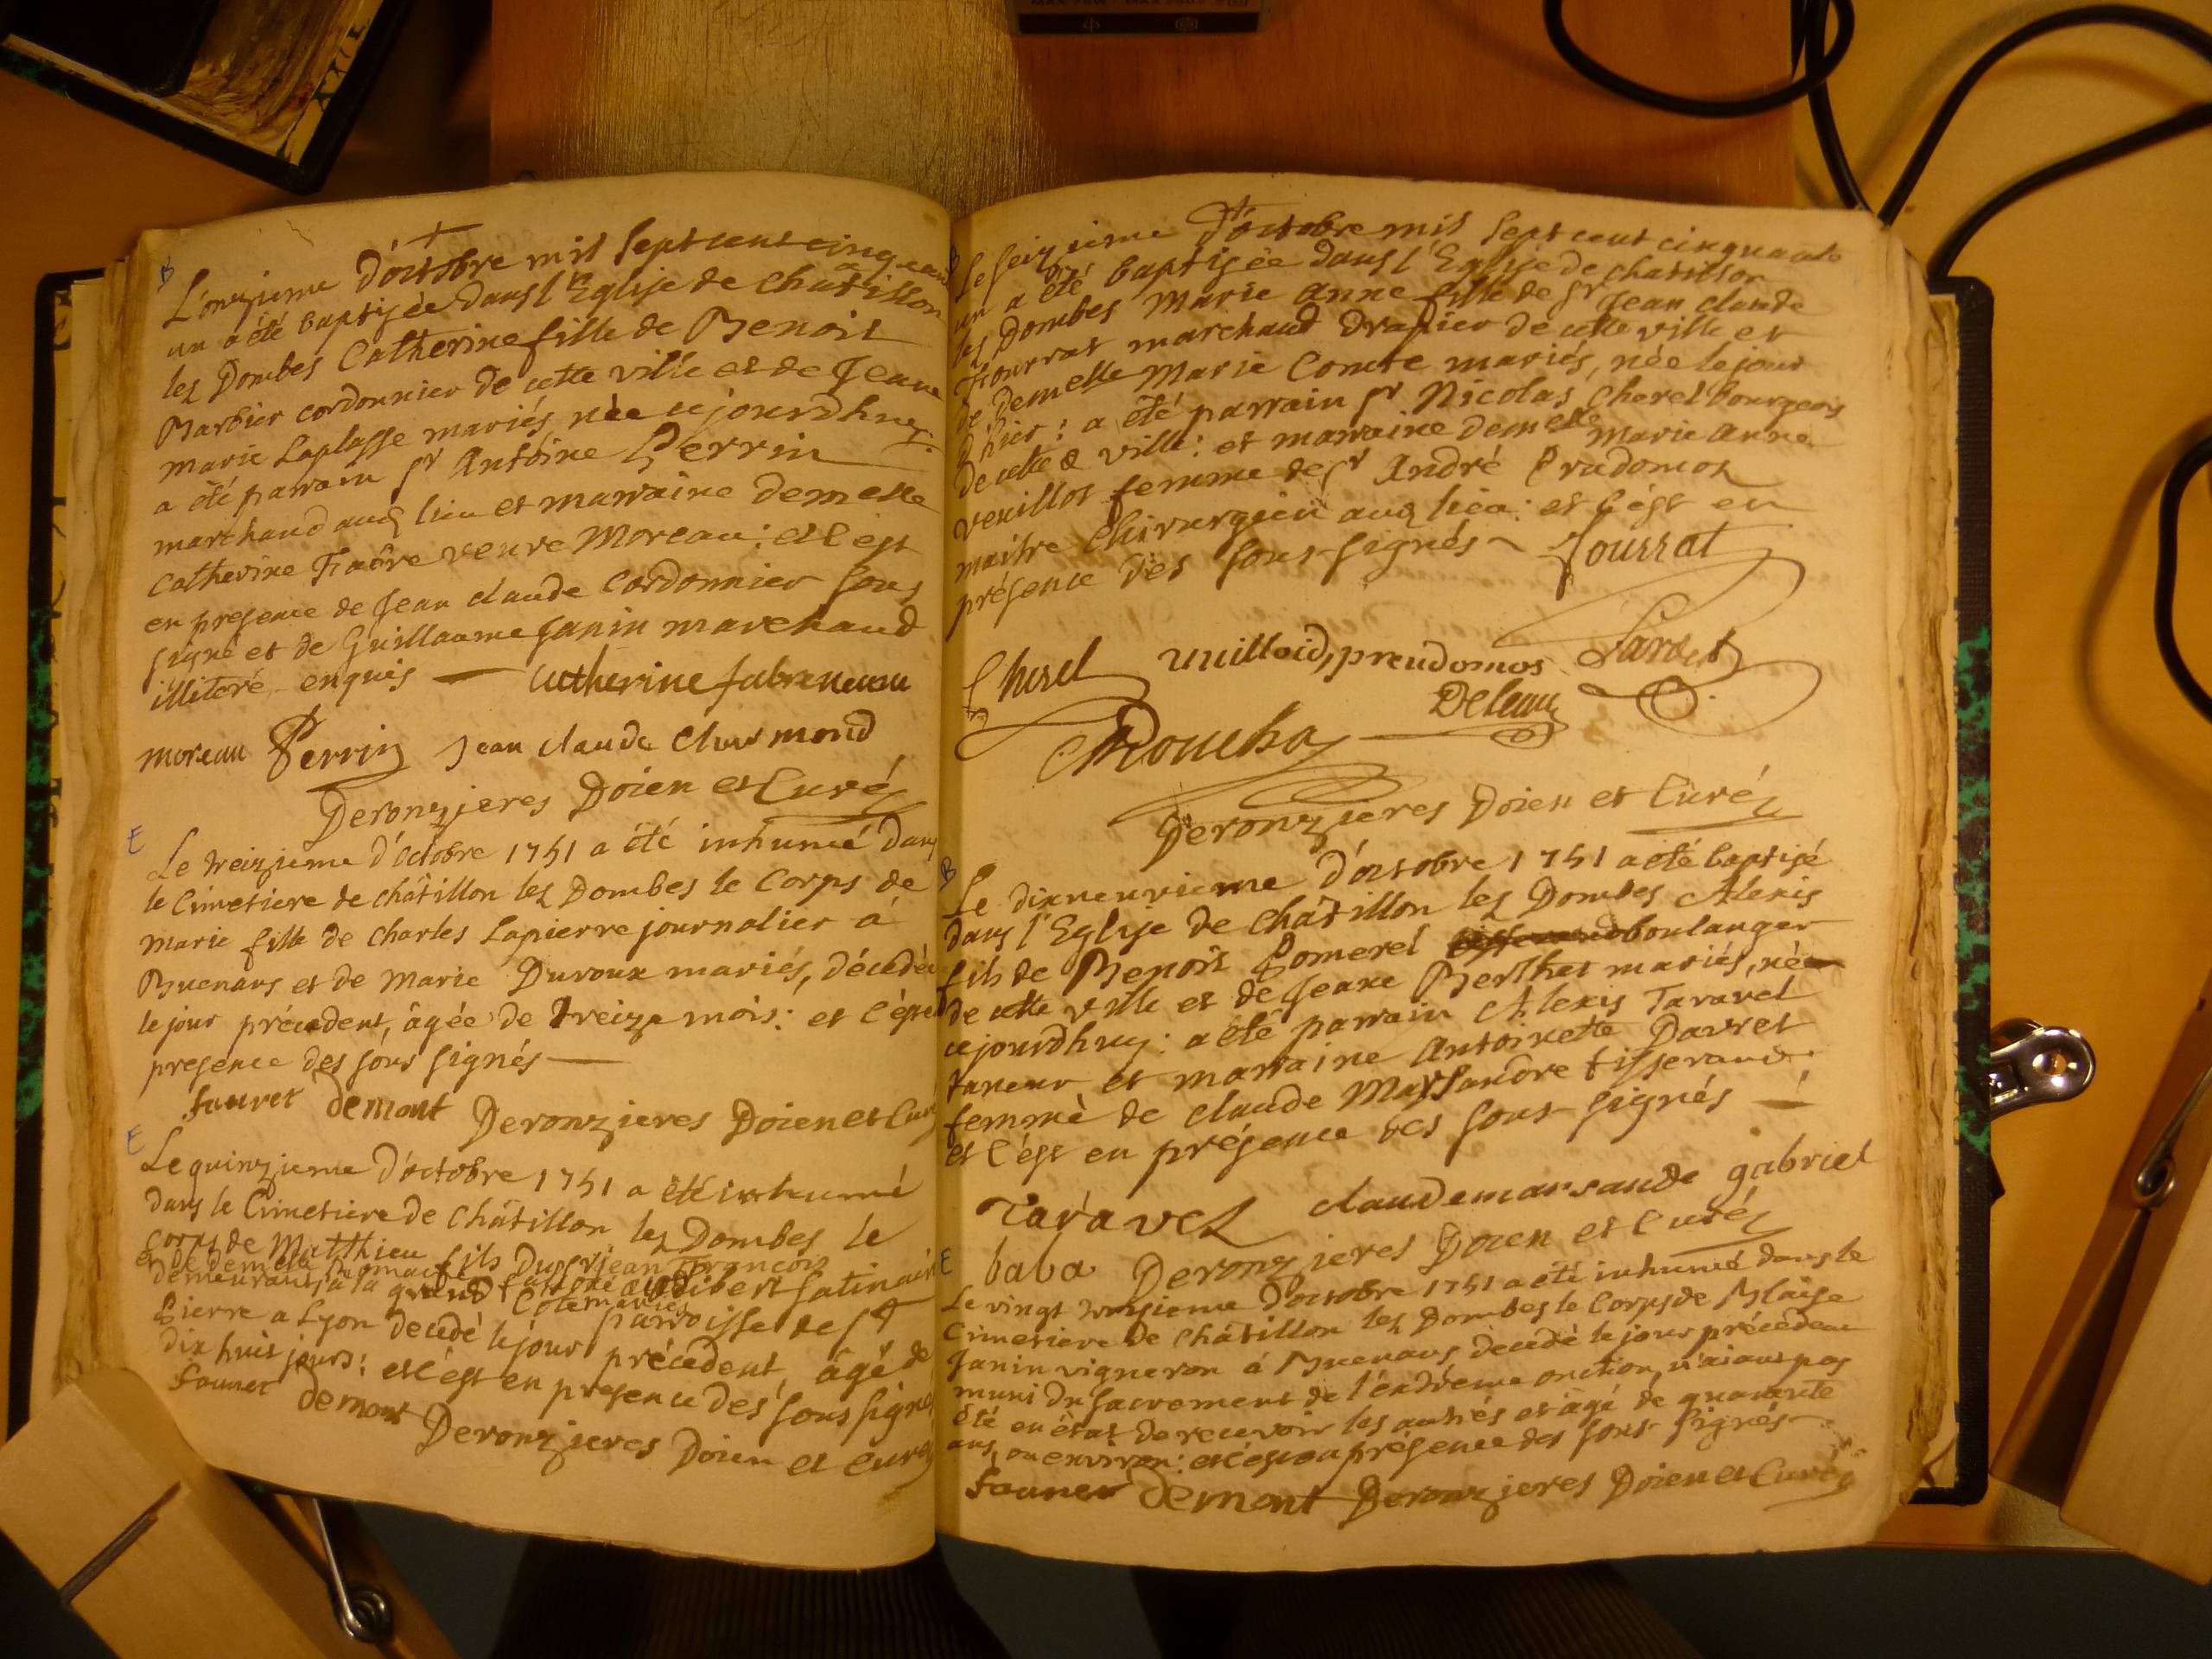 B
L'onzieme D'octobre mil sept cent cinquante
un a été baptisée dans l'Eglise de Châtillon
les Dombes Catherine fille de Benoit
Barbier cordonnier de cette ville et de Jeanne
marie Laplasse mariés, née cejourdhuy:
a été parrain sr Antoine Perrin
marchand aud lieu et marraine demelle
Catherine Fabre veuve Moreau: et c'est
en presence de Jean claude cordonnier sous
signé et de Guillaume Janin marchand
illiteré enquis — Catherine fabre
moreau Perrin Jean claude
Deronzieres Doien et Curé
E
Le treizieme d'octobre 1751 a été inhumé dans
le Cimetiere de châtillon les Dombes le Corps de
marie fille de Charles Lapierre journalier à
Buenans et de Marie Duroux mariés, décédée
le jour précedent, âgée de treize mois: et c'est en
presence des sous signés —
fauret demont Deronzieres Doien et Curé
E
Le quinzieme d'octobre 1751 a été inhumé
dans le Cimetiere de Châtillon les Dombes le
corps de Matthieu fils du sr jean François
et de demelle
demeurant à la grand mariés
Pierre a Lyon decedé le jour précedent, âgé de
parroisse de st
dix huit jours: et c'est en presence des sous signés
fauret demont Deronzieres Doien et Curé
B
Le seizieme D'octobre mil sept cent cinquante
un a été baptisée dans l'Eglise de châtillon
les Dombes Marie Anne fille de sr Jean claude
Fourrat marchand Drapier de cette ville et
de demelle Marie Comte mariés, née le jour
d'hier: a été parrain sr Nicolas Cherel bourgeois
de cette ville: et marraine demelle marie anne
veuillot femme de sr André Prudomos
maitre Chirurgien aud lieu: et c'est en
présence des sous-signés ~ Fourrat
Cherel preudomos Sardet
Deleau
Roucha
Deronzieres Doien et Curé
B
Le dixneuvieme d'octobre 1751 a été baptisé
dans l'Eglise de Châtillon les Dombes Alexis
fils de Benoit Pomerel boulanger
de cette ville et de Jeane Berthet mariés, né
cejourdhuy: a été parrain Alexis Taravel
taneur et marraine Antoinette Davret
femme de claude Marsandre tisserand:
et c'est en présence des sous-signés —
Taravel claude marsande gabriel
baba Deronzieres Doien et Curé
E
Le vingt troisieme d'octobre 1751 a été inhumé dans le
Cimetiere de Châtillon les Dombes le Corps de Blaise
Janin vigneron à Buenans decedé le jour précedent
muni du sacrement de l'extrême onction, n'aiant pas
été en état de recevoir les autres et âgé de quarante
ans, ou environ: et c'est en présence des sous-signés ~
fauret demont Deronzieres Doien et Curé